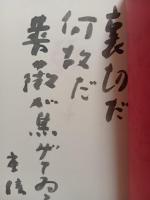 裏切だ
何故だ
薔薇が焦げてゐる
重信